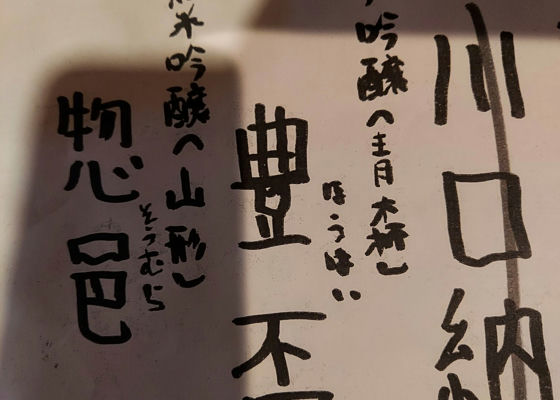 川口納
吟醸（青森）
ほうはい
豊盃
米吟醸（山形）
そうむら
惣邑